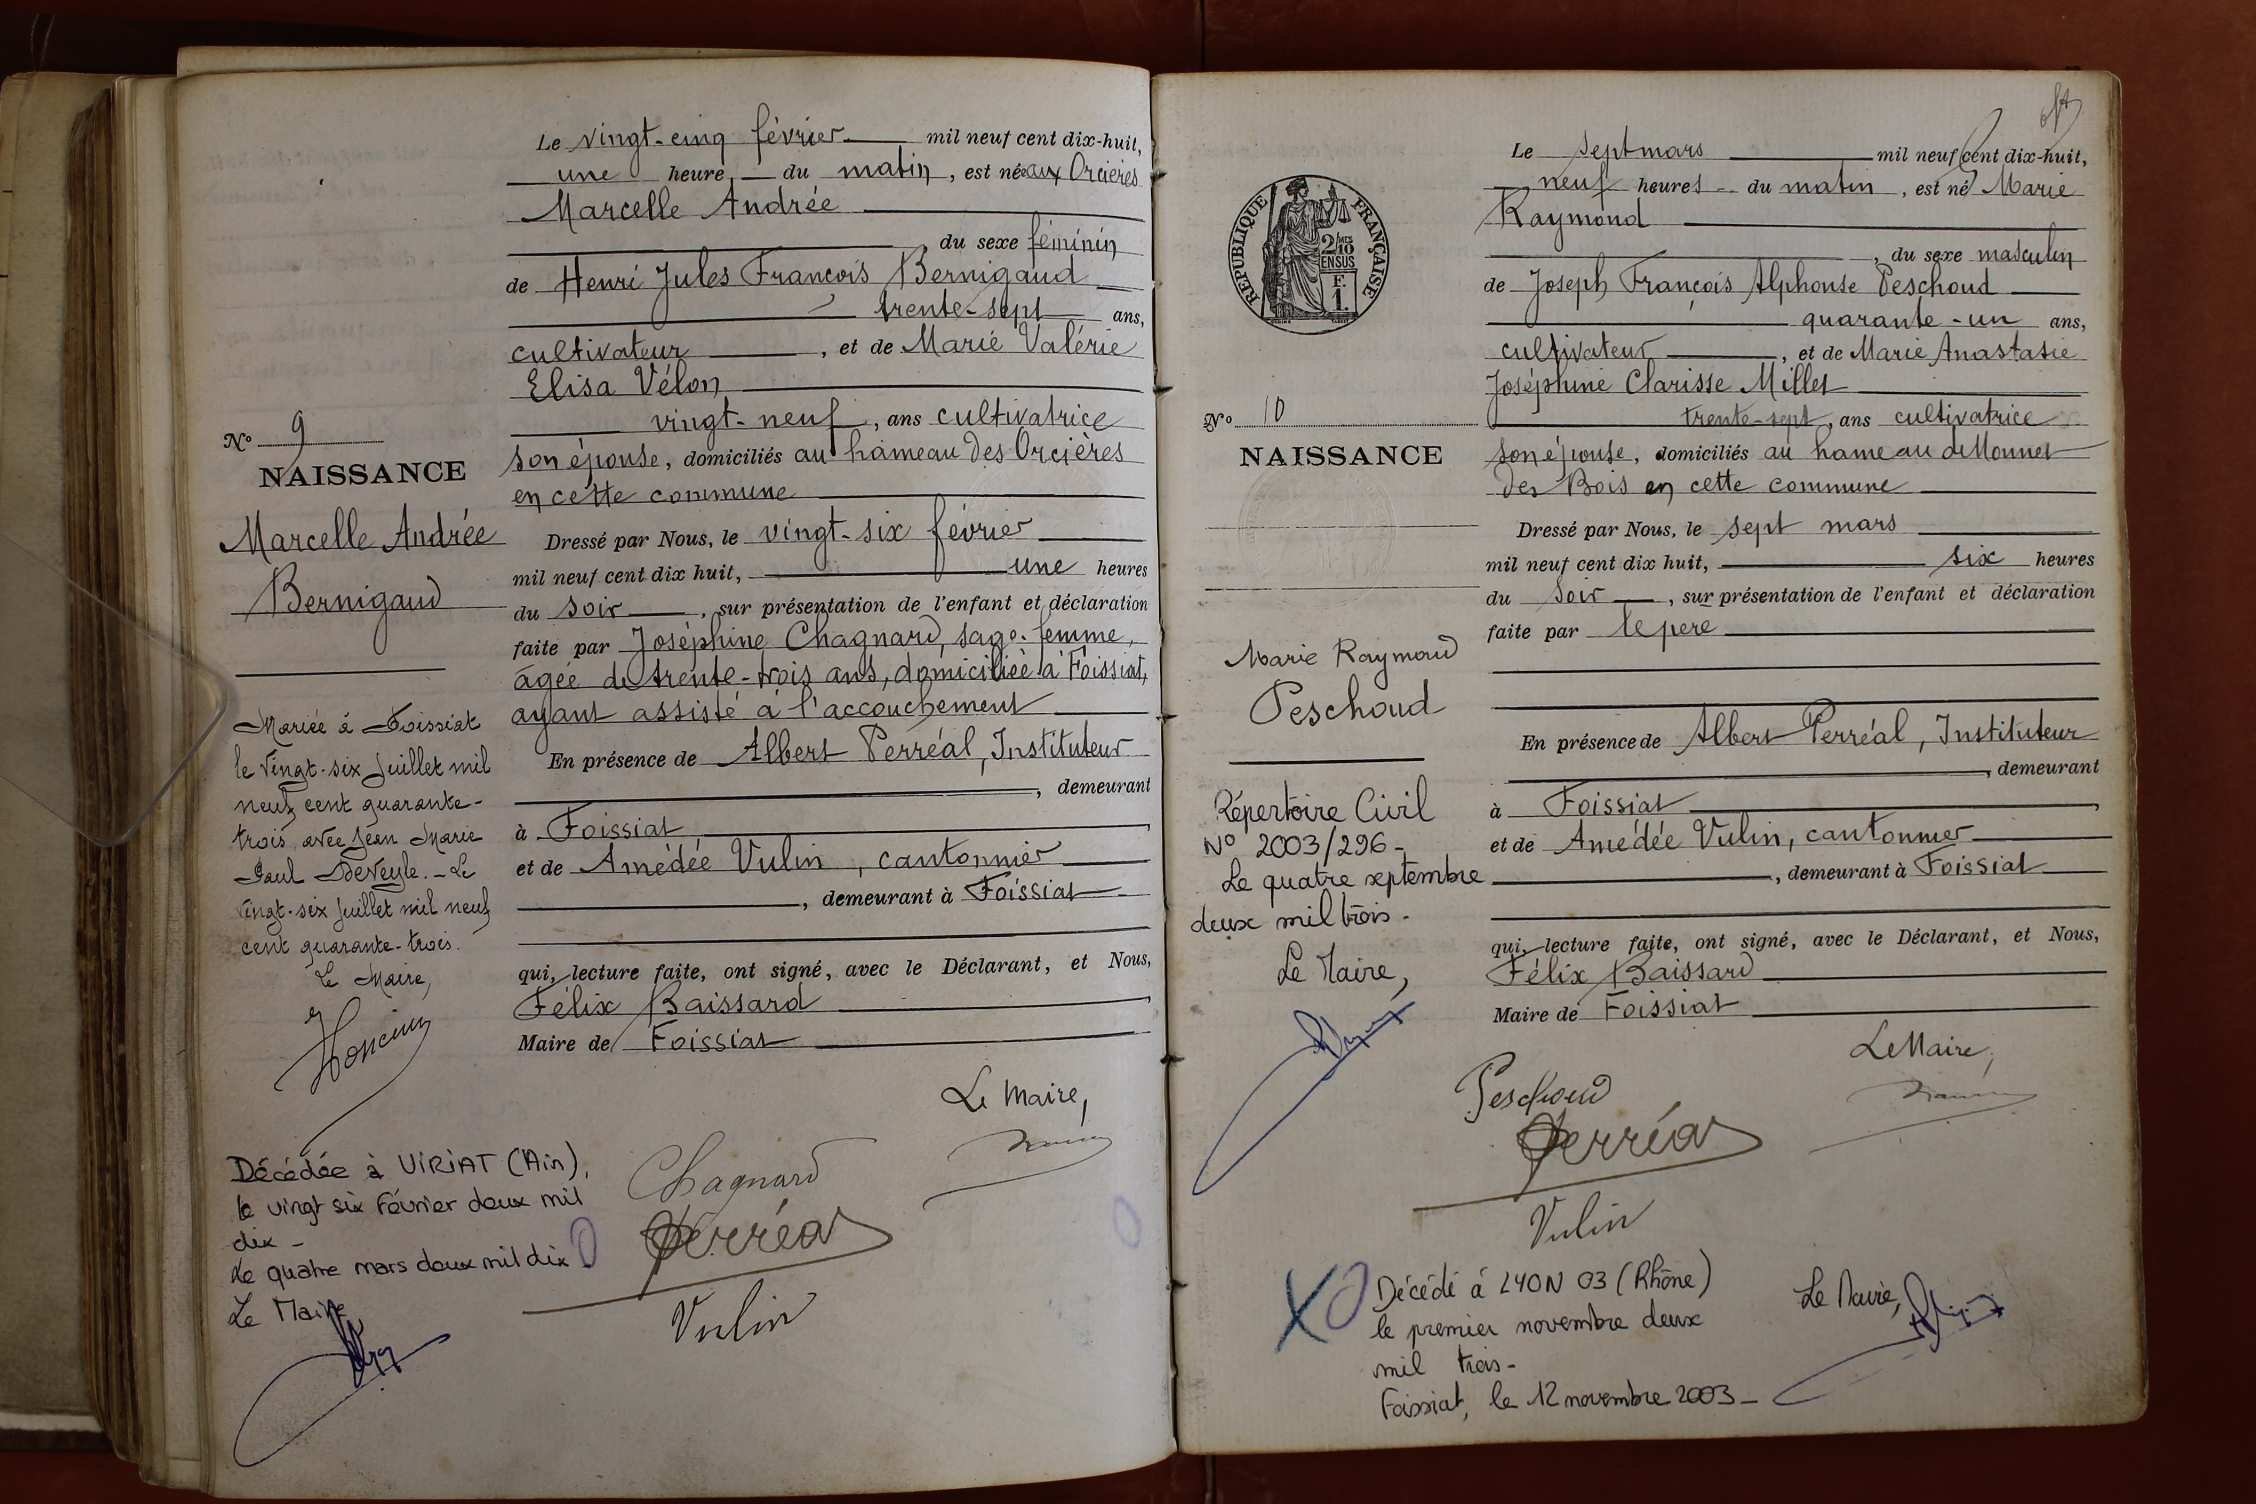 Le vingt-cinq février mil neuf cent dix-huit,
une heure du matin, est née aux Orcières
Marcelle Andrée
, du sexe féminin
de Henri Jules François Bernigaud
trente-sept ans,
cultivateur, et de Marie Valérie
Elisa Vélon
vingt-neuf, ans cultivatrice
son épouse, domiciliés au hameau des Orcières
en cette commune
Dressé par Nous, le vingt-six février
mil neuf cent dix huit, une heures
du soir, sur présentation de l'enfant et déclaration
faite par Joséphine Chagnard, sage-femme,
âgée de trente-trois ans, domiciliée à Foissiat,
ayant assisté à l'accouchement
En présence de Albert Perréal, Instituteur
, demeurant
à Foissiat
et de Amédée Vulin, cantonnier
, demeurant à Foissiat
qui, lecture faite, ont signé, avec le Déclarant, et Nous,
Félix Baissard
Maire de Foissiat
Le Maire,
Chagnard
Perréal
Vulin
No 9
NAISSANCE
Marcelle Andrée
Bernigaud
Mariée à Foissiat
le vingt-six Juillet mil
neuf cent quarante-
trois avec Jean Marie
Paul Deveyle. - Le
vingt-six Juillet mil neuf
cent quarante-trois.
Le Maire,
Décédée à VIRIAT (Ain),
le vingt six Février deux mil
dix -
Le quatre mars deux mil dix
Le Maire
Le sept mars mil neuf cent dix-huit,
neuf heures du matin, est né Marie
Raymond
, du sexe masculin
de Joseph François Alphonse Peschoud
quarante-un ans,
cultivateur, et de Marie Anastasie
Joséphine Clarisse Millet
trente-sept, ans cultivatrice
son épouse, domiciliés au hameau de Monnet
des Bois en cette commune
Dressé par Nous, le sept mars
mil neuf cent dix huit, six heures
du soir, sur présentation de l'enfant et déclaration
faite par le pere
En présence de Albert Perréal, Instituteur
, demeurant
à Foissiat
et de Amédée Vulin, cantonnier
, demeurant à Foissiat
qui, lecture faite, ont signé, avec le Déclarant, et Nous,
Félix Baissard
Maire de Foissiat
Le Maire,
Peschoud
Perréal
Vulin
RÉPUBLIQUE FRANÇAISE
2/10
EN SUS
F.
1
No 10
NAISSANCE
Marie Raymond
Peschoud
Répertoire Civil
No 2003/296 -
Le quatre septembre
deux mil trois -
Le Maire,
Décédé à LYON 03 (Rhône)
le premier novembre deux
mil trois -
Foissiat, le 12 novembre 2003 -
Le Maire,